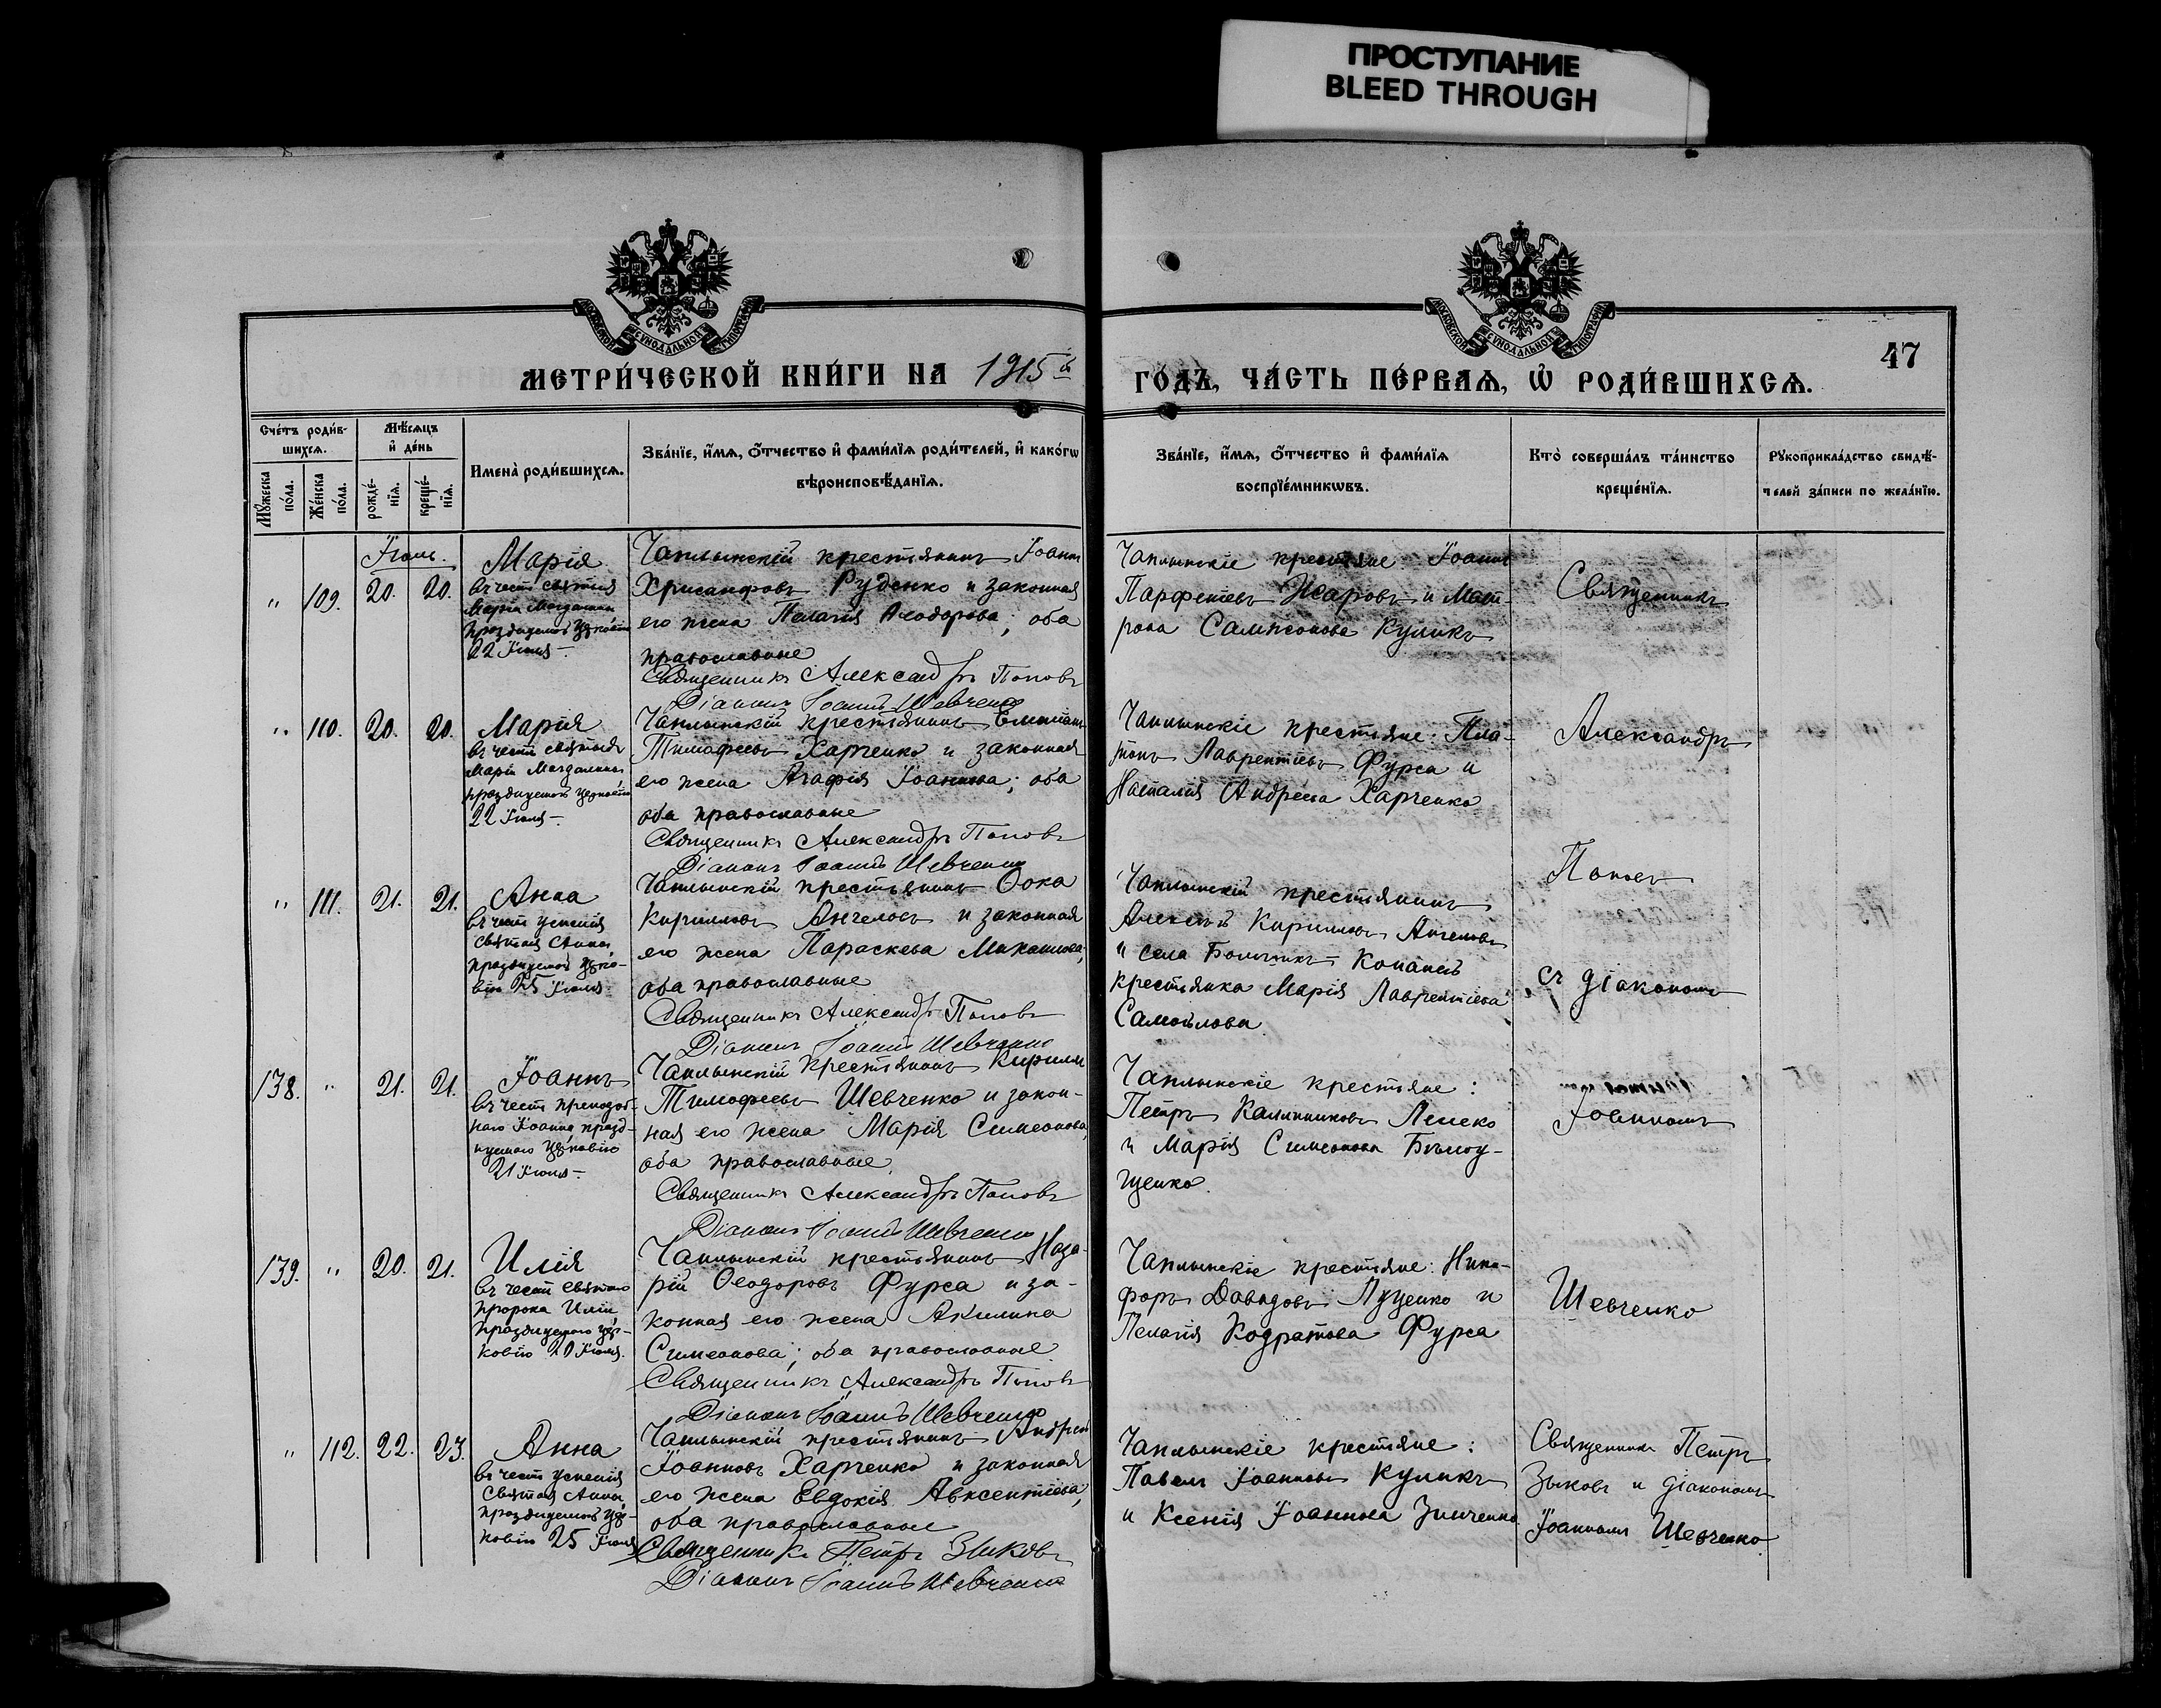 ПРОСТУПАНИЕ
BLEED THROUGH
МОСКОВСКОЙ СѴНОДАЛЬНОЙ ТИПОГРАФІИ
МОСКОВСКОЙ СѴНОДАЛЬНОЙ ТИПОГРАФІИ
МЕТРИ́ЧЕСКОЙ КНИ́ГИ НА 1915й
ГО́ДЪ, ЧА́СТЬ ПЕ́РВАѦ, Ѡ҆ РОДИ́ВШИХСѦ.
47
Сче́тъ роди́в-
шихсѧ.
Мꙋ́жеска
по́ла.
Же́нска
по́ла.
Мѣ́сѧцъ
и҆ де́нь
рожде́-
нїѧ.
креще́-
нїѧ.
Имена̀ роди́вшихсѧ.
Зва́нїе, и҆́мѧ, ѻ҆́тчество и҆ фами́лїѧ роди́телей, и҆ како́гѡ
вѣроисповѣ́данїѧ.
Зва́нїе, и҆́мѧ, ѻ҆́тчество и҆ фами́лїѧ
воспрїе́мникѡвъ.
Кто̀ соверша́лъ та́инство
креще́нїѧ.
Рꙋкоприкла́дство свидѣ́-
телей за́писи по жела́нїю.
Іюль.
" 109. 20. 20.
Марія
въ честь святыя
Маріи Магдалины
празднуемой церковію
22 Іюля
Чаплынскій крестьянинъ Іоаннъ
Хрисанфовъ Руденко и законная
его жена Пелагія Ѳеодорова; оба
православные
Священникъ Александръ Поповъ
Діаконъ Іоаннъ Шевченко
Чаплынскіе крестьяне Іоаннъ
Парфеніевъ и Мат-
рона Сампсонова Куликъ
Священникъ
" 110. 20. 20.
Марія
въ честь святыя
Маріи Магдалины
празднуемой церковію
22 Іюля
Чаплынскій крестьянинъ Емиліанъ
Тимофеевъ Харченко и законная
его жена Агафія Іоаннова; оба
оба православные
Священникъ Александръ Поповъ
Діаконъ Іоаннъ Шевченко
Чаплынскіе крестьяне: Пла-
тонъ Лаврентіевъ Фурса и
Наталія Андреева Харченко
Александръ
" 111. 21. 21.
Анна
въ честь успенія
святыя Анны
празднуемой церко-
вію 25 Іюля
Чаплынскій крестьянинъ Ѳока
Кирилловъ Ангеловъ и законная
его жена Параскева Михаилова;
оба православные
Священникъ Александръ Поповъ
Діаконъ Іоаннъ Шевченко
Чаплынскій крестьянинъ
Алексѣй Кирилловъ Ангеловъ
и села Копаней
крестьянка Марія Лаврентіева
Самойлова
Поповъ
съ діакономъ
138. " 21. 21.
Іоаннъ
въ честь преподоб-
наго Іоанна празд-
нуемаго церковію
21 Іюля
Чаплынскій крестьянинъ Кириллъ
Тимофеевъ Шевченко и закон-
ная его жена Марія Симеонова,
оба православные.
Священникъ Александръ Поповъ
Діаконъ Іоаннъ Шевченко
Чаплынскіе крестьяне:
Петръ Калинниковъ
и Марія Симеонова
Іоанномъ
139. " 20. 21.
Илія
въ честь святаго
пророка Иліи
празднуемаго цер-
ковію 20 Іюля.
Чаплынскій крестьянинъ Наза-
рій Ѳеодоровъ Фурса и за-
конная его жена Акилина
Симеонова; оба православные
Священникъ Александръ Поповъ
Діаконъ Іоаннъ Шевченко
Чаплынскіе крестьяне: Ники-
форъ Давидовъ Луценко и
Пелагія Кодратова Фурса
Шевченко
" 112. 22. 23.
Анна
въ честь успенія
святыя Анны,
празднуемой цер-
ковію 25 Іюля
Чаплынскій крестьянинъ Андрей
Іоанновъ Харченко и законная
его жена Евдокія Авксентіева;
оба православные
Священникъ Петръ Зыковъ
Діаконъ Іоаннъ Шевченко
Чаплынскіе крестьяне:
Павелъ Іоанновъ Куликъ
и Ксенія Іоаннова Зинченко
Священникъ Петръ
Зыковъ и діакономъ
Іоанномъ Шевченко